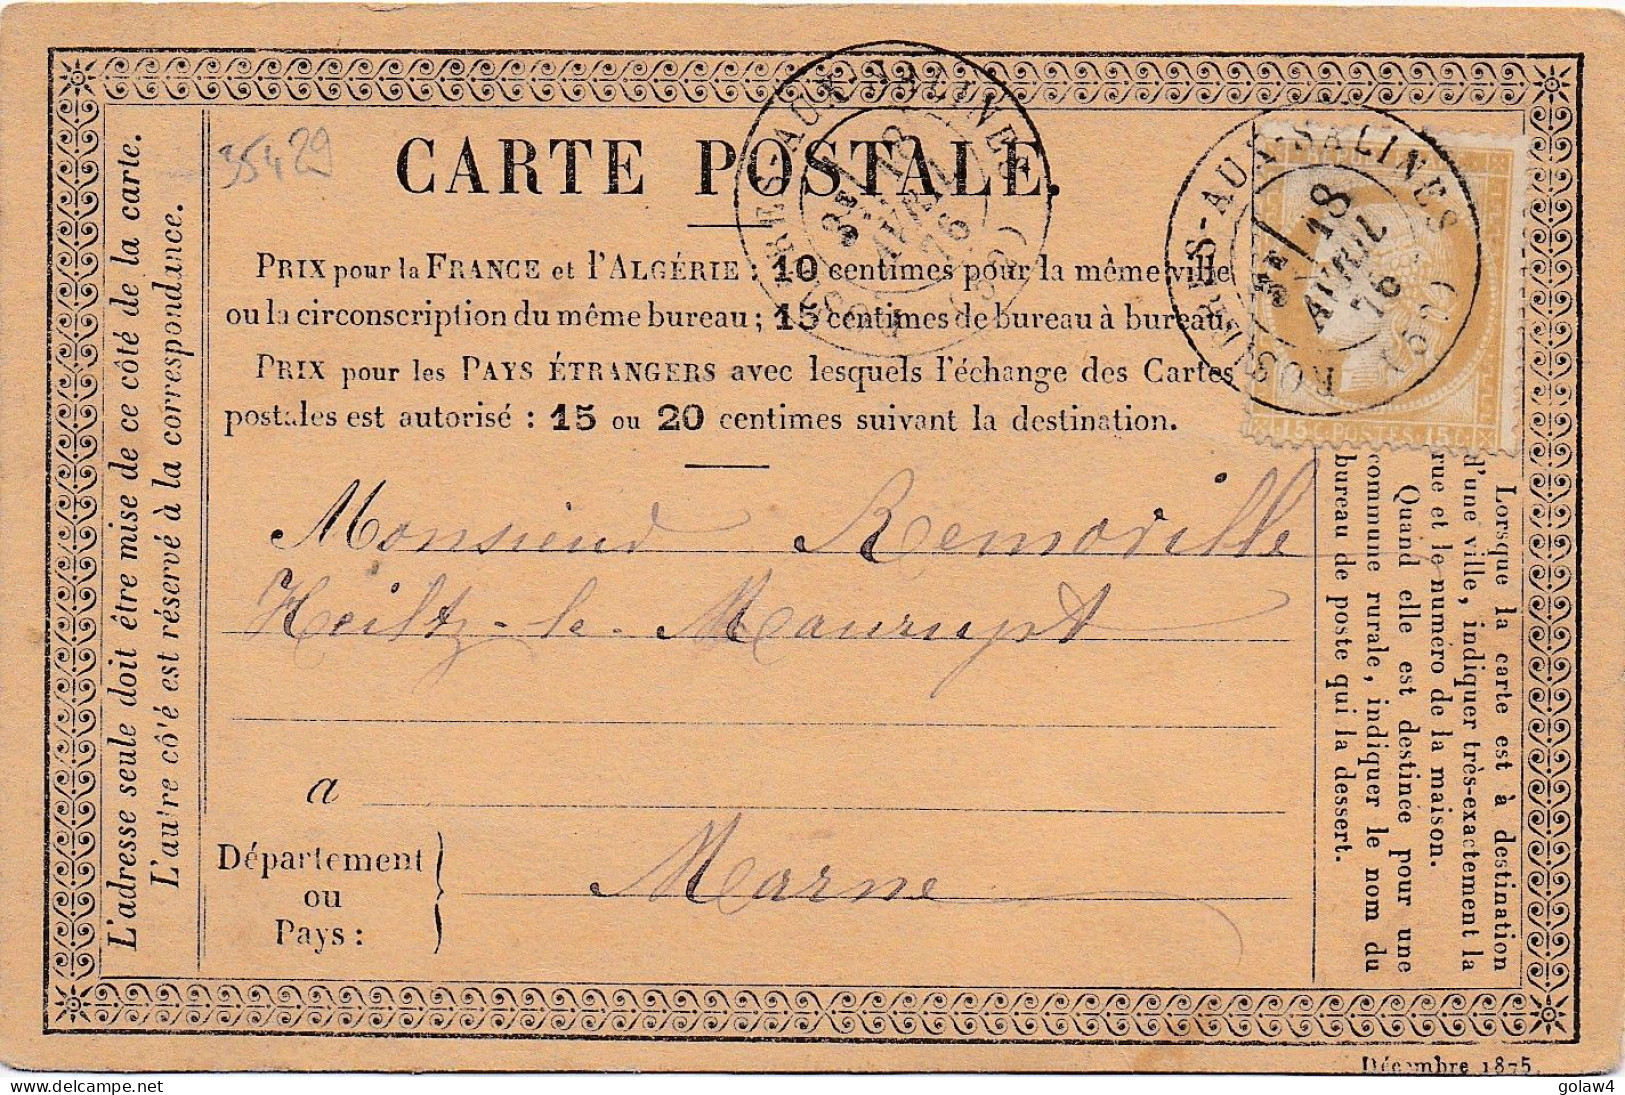 35429
CARTE POSTALE.
PRIX pour la FRANCE et l'ALGÉRIE : 10 centimes pour la même ville
ou la circonscription du même bureau ; 15 centimes de bureau à bureau.
PRIX pour les PAYS ÉTRANGERS avec lesquels l'échange des Cartes
postales est autorisé : 15 ou 20 centimes suivant la destination.
ROSIÈRES-AUX-SALINES
3E / 18
AVRIL
76
ROSIÈRES-AUX-SALINES
3E / 18
AVRIL
76
15 C. POSTES 15 C.
Monsieur Removille
Heiltz-le-Maurupt
a
Département
ou
Pays :
Marne
L'adresse seule doit être mise de ce côté de la carte.
L'autre côté est réservé à la correspondance.
Lorsque la carte est à destination
d'une ville, indiquer très-exactement la
rue et le numéro de la maison.
Quand elle est destinée pour une
commune rurale, indiquer le nom du
bureau de poste qui la dessert.
Décembre 1875.
golaw4